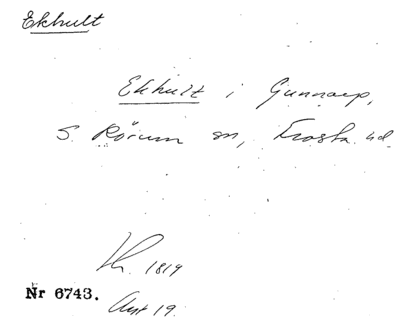 Ekhult
Ekhult i Gunnarp,
S. Rörum sn, Frosta hd.
Kr. 1819
Nr 6743.
Avst 19.